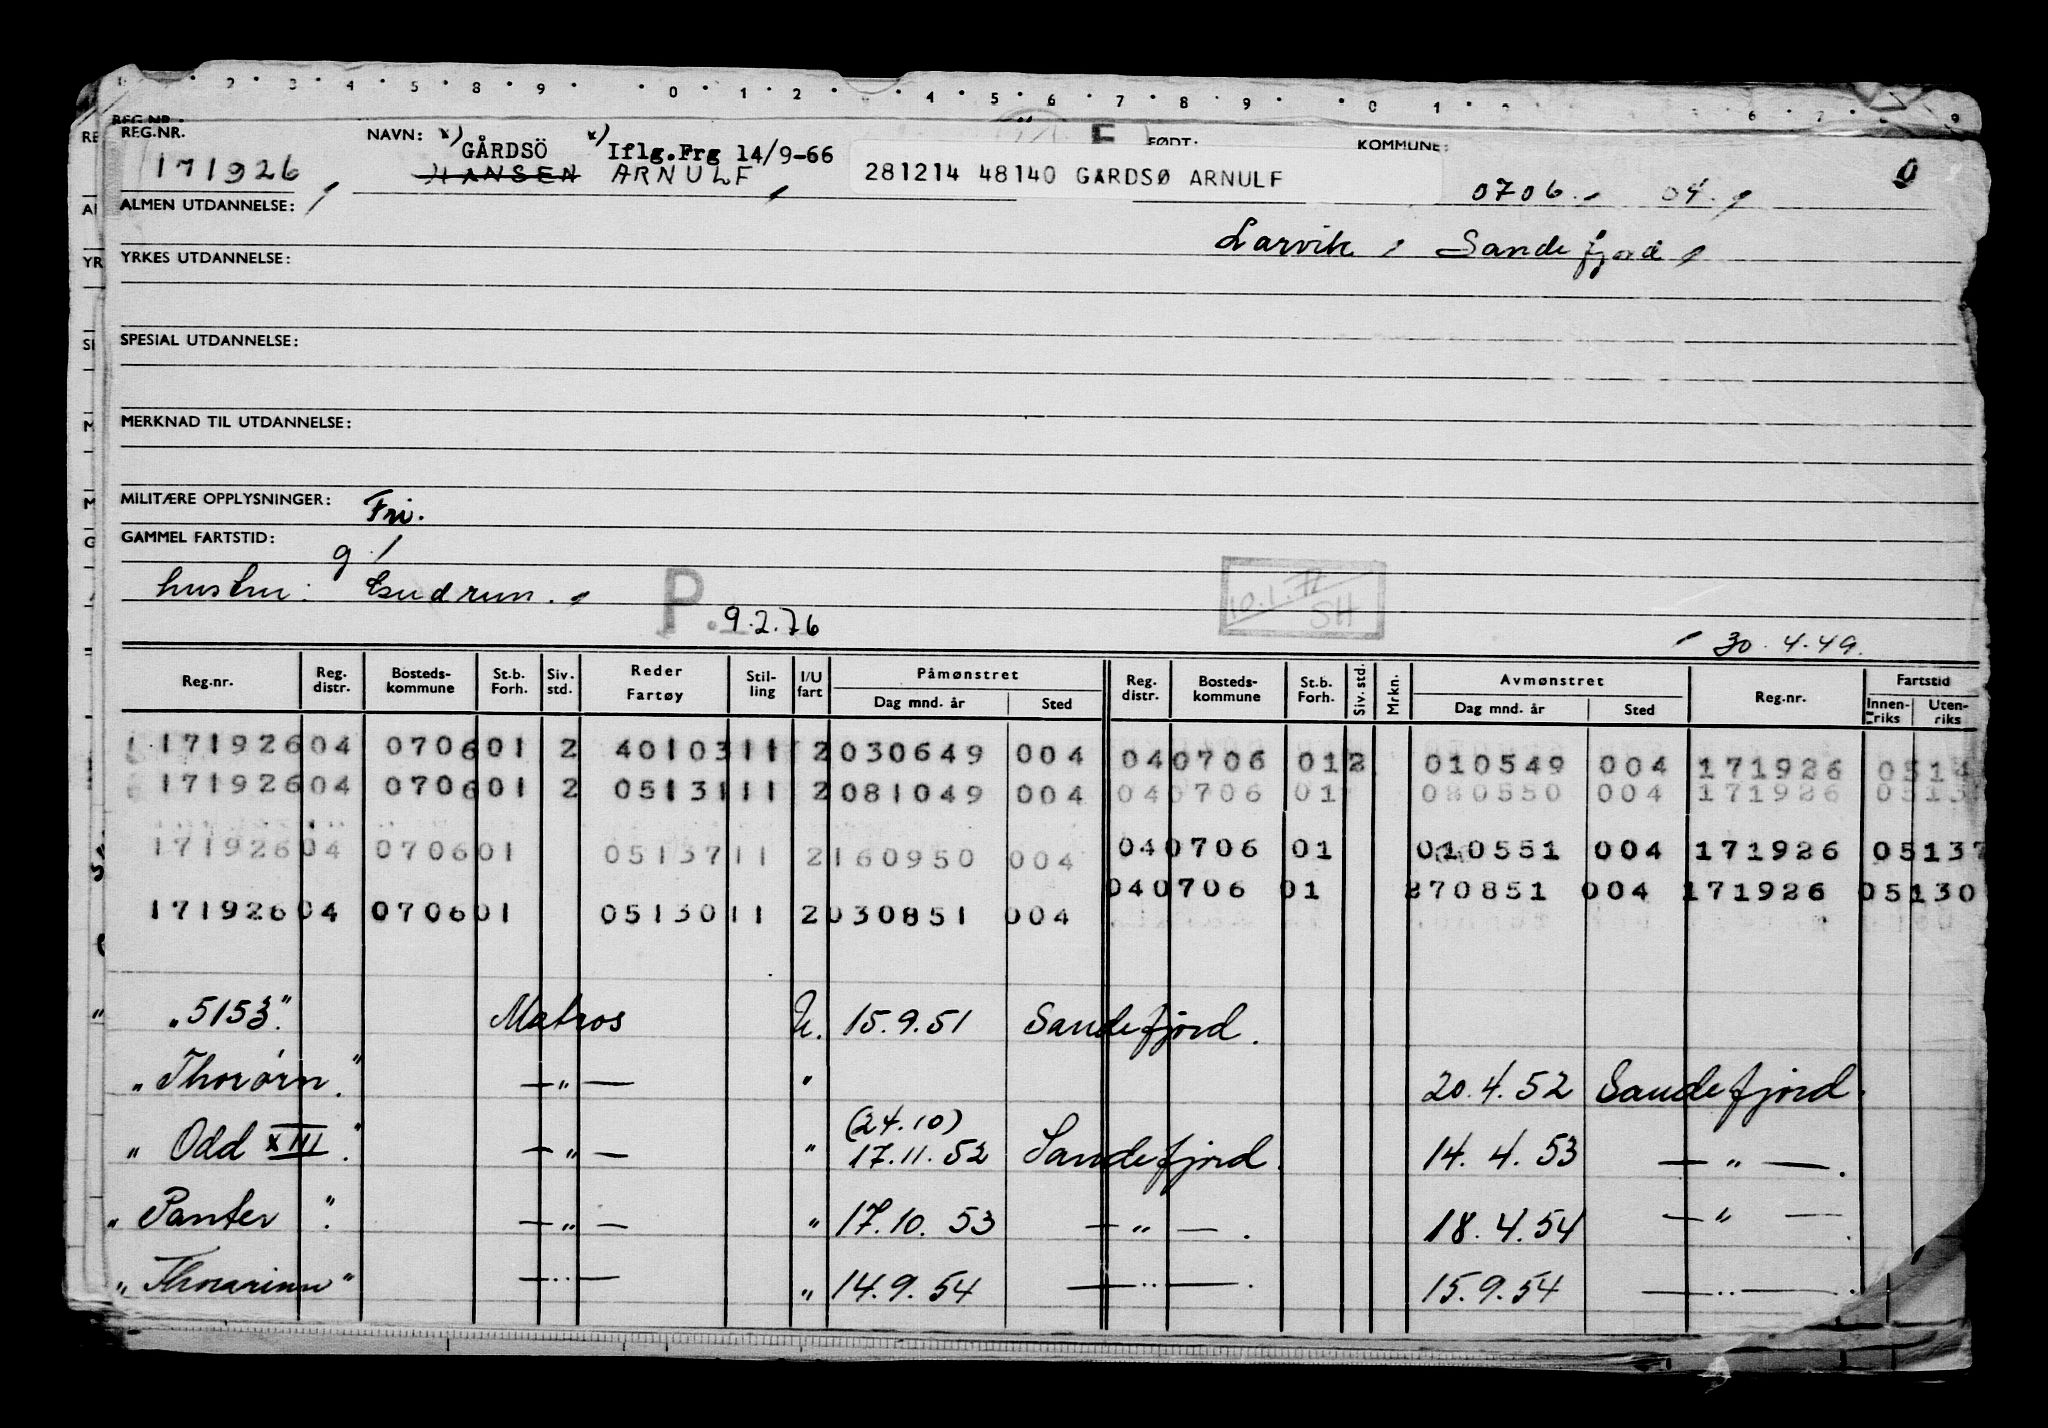 1 2 3 4 5 8 9 0 1 2 4 5 6 7 8 9 0 1 6 7 9
REG.NR.
REG.NR. NAVN: x) GÅRDSÖ x) Iflg.Frg 14/9-66 F FØDT: KOMMUNE:
171926 HANSEN ARNULF 281214 48140 GARDSØ ARNULF 0706. 04. 0
ALMEN UTDANNELSE:
Larvik Sandefjord
YRKES UTDANNELSE:
SPESIAL UTDANNELSE:
MERKNAD TIL UTDANNELSE:
MILITÆRE OPPLYSNINGER: Fri.
GAMMEL FARTSTID:
g /
hustru: Gudrun. P. 9.2.76 10.1.77 SH
30.4.49.
Reg.nr. Reg. distr. Bosteds-kommune St.b. Forh. Siv. std. Reder Fartøy Stil-ling I/U fart Påmønstret Dag mnd. år Sted Reg. distr. Bosteds-kommune St.b. Forh. Siv. std. Mrkn. Avmønstret Dag mnd. år Sted Reg.nr. Fartstid Innen-riks Uten-riks
171926 04 0706 01 2 40103 11 2 030649 004 04 0706 01 2 010549 004 171926 0514
171926 04 0706 01 2 05131 11 2 081049 004 04 0706 01 080550 004 171926 0513
171926 04 0706 01 05137 11 2 160950 004 04 0706 01 010551 004 171926 05137
04 0706 01 270851 004 171926 05130
171926 04 0706 01 05130 11 2 030851 004
"5153" Matros U. 15.9.51 Sandefjord.
"Thorørn." —"— " 20.4.52 Sandefjord.
"Odd XIII." —"— " (24.10) 17.11.52 Sandefjord. 14.4.53 —"—.
"Panter". —"— " 17.10.53 —"—. 18.4.54 —"—.
"Thorarinn" —"— " 14.9.54 —"—. 15.9.54 —"—.